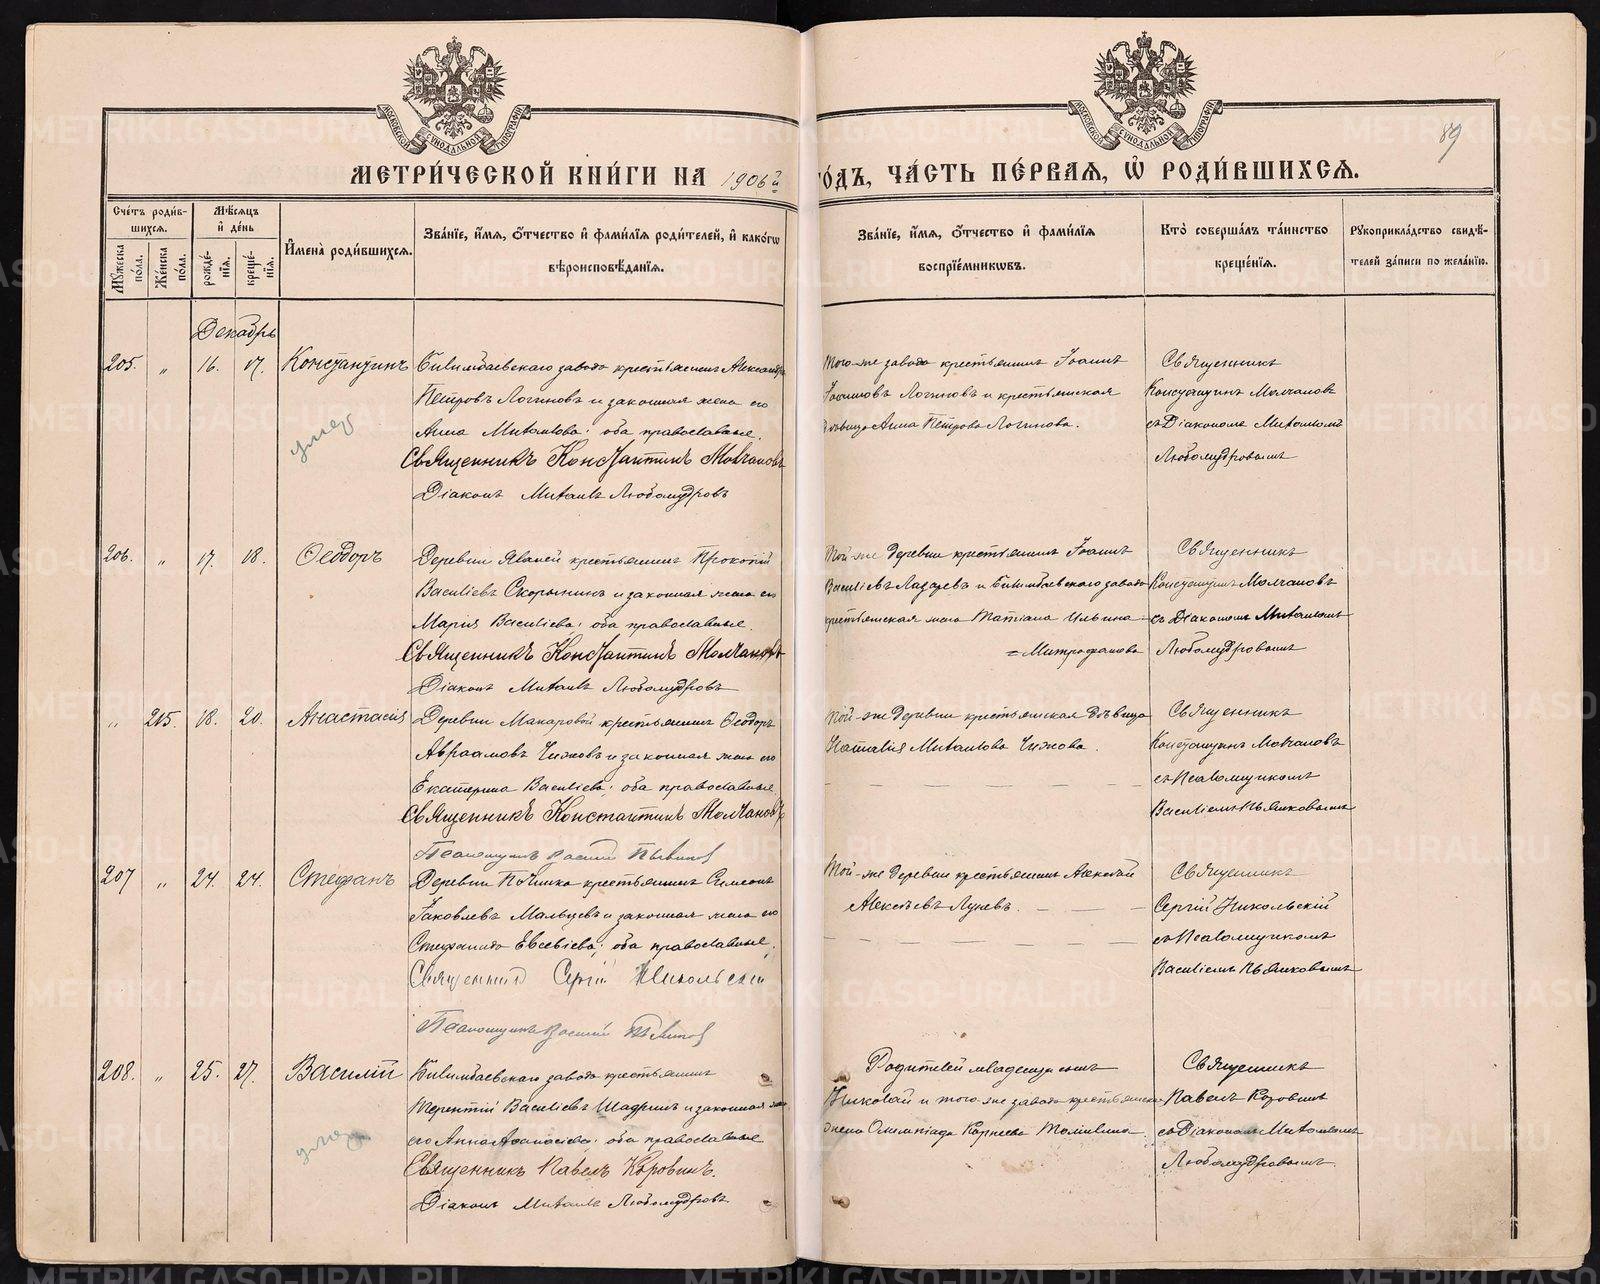 МОСКОВСКОЙ СѴНОДАЛЬНОЙ ТИПОГРАФІИ
МОСКОВСКОЙ СѴНОДАЛЬНОЙ ТИПОГРАФІИ
89
МЕТРИ́ЧЕСКОЙ КНИ́ГИ НА 1906 й
ГО́ДЪ, ЧА́СТЬ ПЕ́РВАѦ, Ѡ҆ РОДИ́ВШИХСѦ.
Сче́тъ роди́в-
шихсѧ.
Мꙋ́жеска по́ла.
Же́нска по́ла.
Мѣ́сѧцъ
и҆ де́нь
рожде́-нїѧ.
креще́-нїѧ.
И҆мена̀ роди́вшихсѧ.
Зва́нїе, и҆́мѧ, ѻ҆́тчество и҆ фами́лїѧ роди́телей, и҆ како́гѡ
вѣроисповѣ́данїѧ.
Зва́нїе, и҆́мѧ, ѻ҆́тчество и҆ фами́лїѧ
воспрїе́мникѡвъ.
Кто̀ соверша́лъ та́инство
креще́нїѧ.
Рꙋкоприкла́дство свидѣ́-
телей за́писи по жела́нїю.
Декабрь
205. „ 16. 17. Константинъ
Билимбаевскаго завода крестьянинъ Александръ
Петровъ Логиновъ и законная жена его
Анна Михаилова; оба православные.
Священникъ Константинъ Молчановъ
Діаконъ Михаилъ Любомудровъ
Того-же завода крестьянинъ Іоаннъ
Іоанновъ Логиновъ и крестьянская
дѣвица Анна Петрова Логинова.
Священникъ
Константинъ Молчановъ
съ Діакономъ Михаиломъ
Любомудровымъ
умер
206. „ 17. 18. Ѳеодоръ
Деревни крестьянинъ Прокопій
Василіевъ Скорынинъ и законная жена его
Марія Василіева; оба православные.
Священникъ Константинъ Молчановъ
Діаконъ Михаилъ Любомудровъ
Той-же деревни крестьянинъ Іоаннъ
Василіевъ Лазаревъ и Билимбаевскаго завода
крестьянская жена Татіана Ильина
= Митрофанова
Священникъ
Константинъ Молчановъ
съ Діакономъ Михаиломъ
Любомудровымъ
„ 215. 18. 20. Анастасія
Деревни Макаровой крестьянинъ Ѳеодоръ
Авраамовъ Чижовъ и законная жена его
Екатерина Василіева; оба православные.
Священникъ Константинъ Молчановъ
Псаломщикъ Василій Пьянков
Той-же деревни крестьянская дѣвица
Наталія Михаилова Чижова.
Священникъ
Константинъ Молчановъ
съ Псаломщикомъ
Василіемъ Пьянковымъ
207 „ 24. 24. Стефанъ
Деревни Починка крестьянинъ Симеонъ
Іаковлевъ Мальцевъ и законная жена его
Стефанида Евсевіева; оба православные.
Священник Сергій Никольскій
Псаломщикъ Василій Пьянков
Той-же деревни крестьянинъ Алексій
Алексѣевъ Луневъ.
Священникъ
Сергій Никольскій
съ Псаломщикомъ
Василіемъ Пьянковымъ
208. „ 25. 27. Василій
Билимбаевскаго завода крестьянинъ
Терентій Василіевъ Шадринъ и законная жена
его Анна Аѳанасіева; оба православные
Священникъ Павелъ Коровинъ.
Діаконъ Михаилъ Любомудровъ
Родителей младенца сынъ
Николай и того-же завода крестьянская
жена Олимпіада Карпеева
Священникъ
Павелъ Коровинъ
съ Діакономъ Михаиломъ
Любомудровымъ.
умер
METRIKI.GASO-URAL.RU